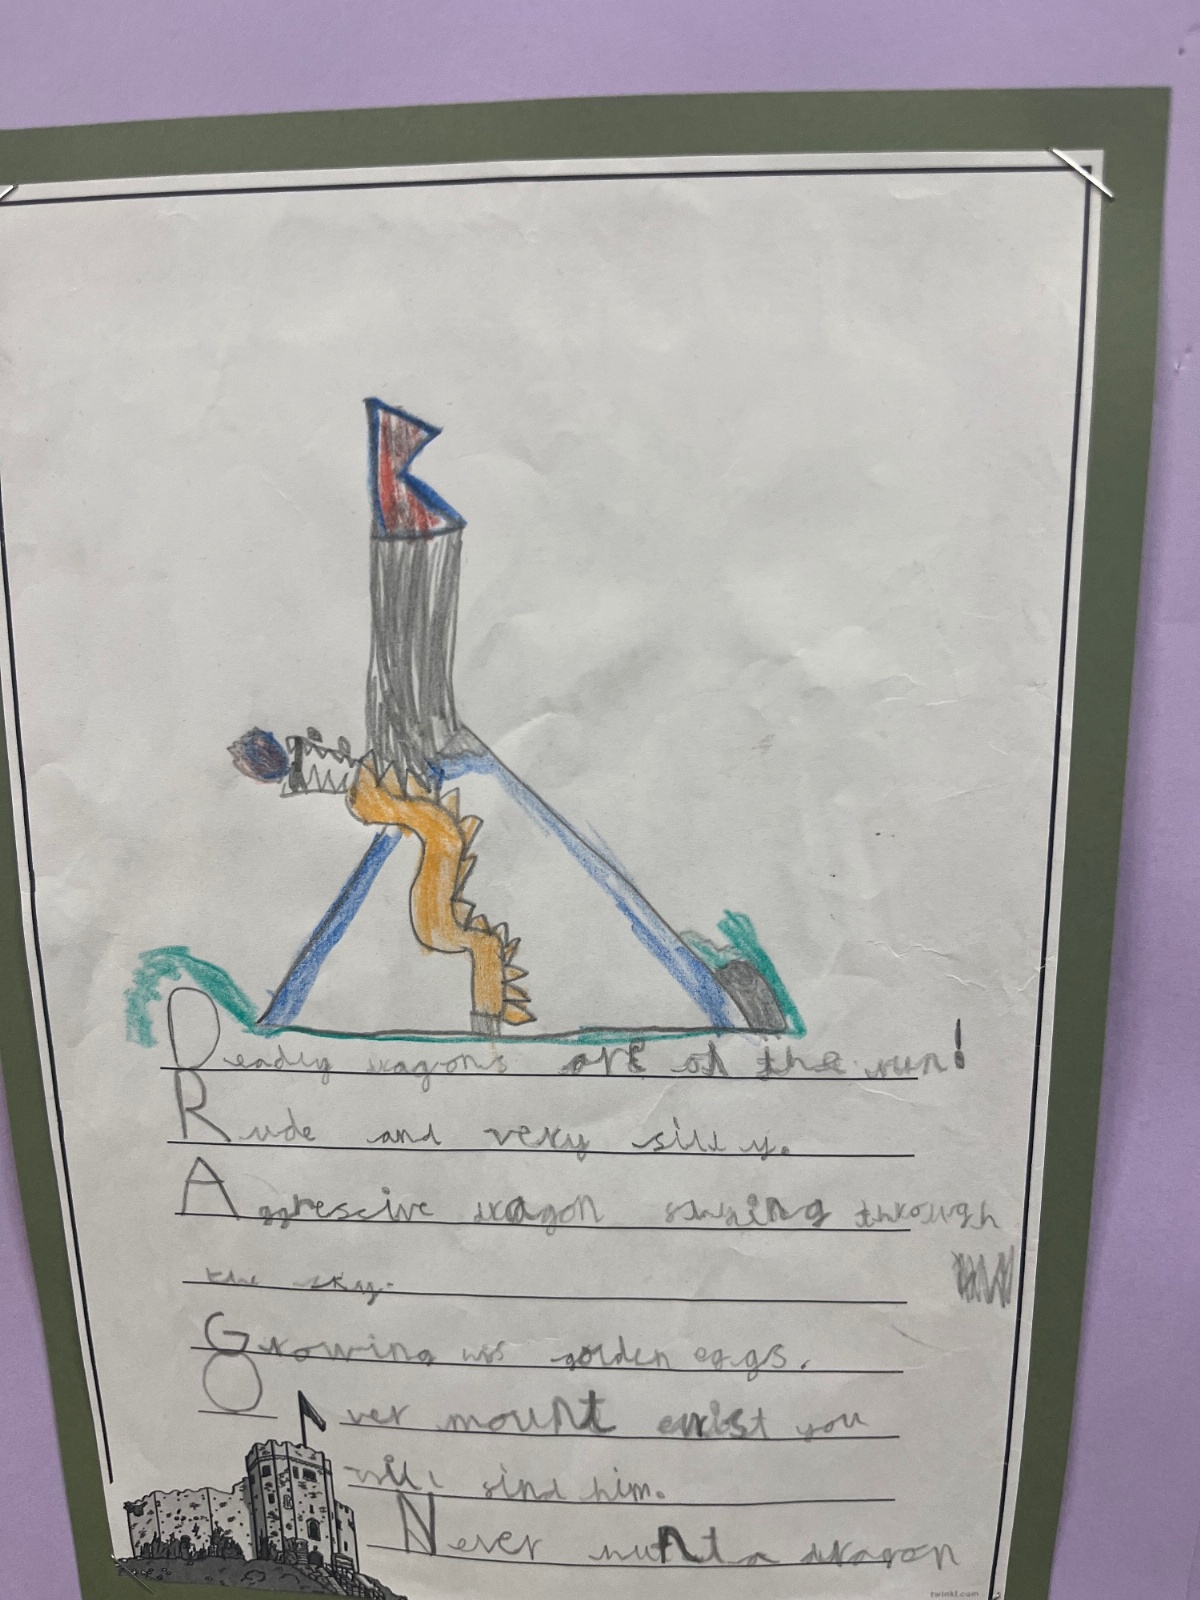 Deadly dragons are on the run!
Rude and very silly.
Aggrescive dragon through
the sky.
Growing golden eggs.
Over mount exist you
will find him.
Never hunt a dragon
twinkl.com